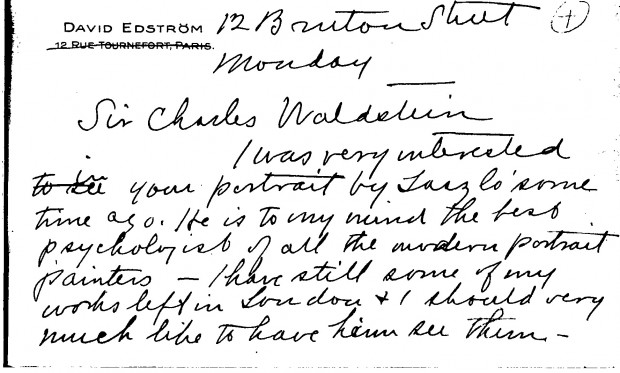 DAVID EDSTRÖM 12 Bruton Street
12 RUE TOURNEFORT, PARIS.
Monday
Sir Charles Waldstein
I was very interested
to see in your portrait by Laszlo some
time ago. He is to my mind the best
psychologist of all the modern portrait
painters — I have still some of my
works left in London & I should very
much like to have him see them —